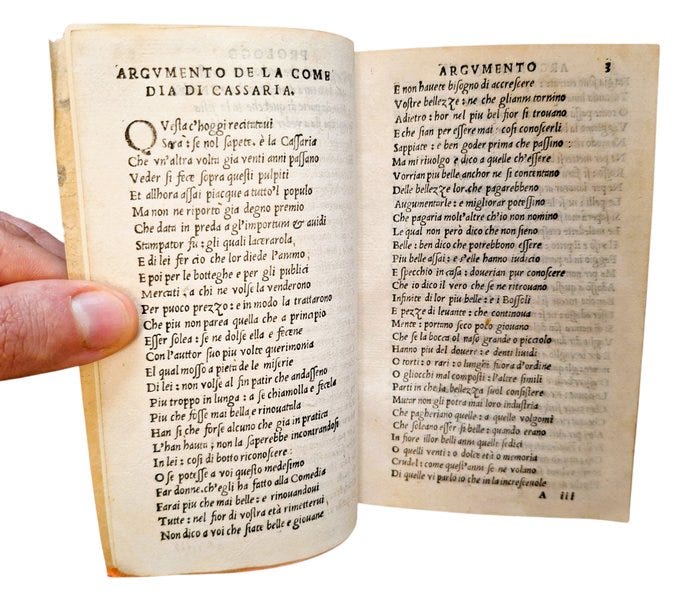 ARGVMENTO DE LA COME
DIA DI CASSARIA.
QVesta c'hoggi recitarui
Sera: se nol sapete, è la Cassaria
Che vn'altra volta gia venti anni passano
Veder si fece sopra questi pulpiti
Et allhora assai piacque a tutto'l populo
Ma non ne riportò gia degno premio
Che data in preda a gl'importuni & auidi
Stampator fu: gli quali lacerarola,
E di lei fer cio che lor diede l'animo;
E poi per le botteghe e per gli publici
Mercati, a chi ne volse la venderono
Per puoco prezzo: e in modo la trattarono
Che piu non parea quella che a principio
Esser solea: se ne dolse ella e fecene
Con l'auttor suo piu volte querimonia
El qual mosso a pietà de le miserie
Di lei: non volse al fin patir che andasseno
Piu troppo in lunga: a se chiamolla e fecela
Piu che fosse mai bella, e rinouatala
Han si che forse alcuno che gia in pratica
L'han hauta; non la saperebbe incontrandosi
In lei: cosi di botto riconoscere:
O se potesse a voi questo medesimo
Far donne, ch'egli ha fatto alla Comedia
Farai piu che mai belle: e rinouandoui
Tutte: nel fior di vostra età rimetterui
Non dico a voi che siate belle e giouane
ARGVMENTO 3
E non hauete bisogno di accrescere
Vostre bellezze: ne che glianni tornino
Adietro: hor nel piu bel fior si trouano
E che sian per essere mai cosi conoscerli
Sappiate: e ben goder prima che passino:
Ma mi riuolgo e dico a quelle ch'essere
Vorrian piu belle anchor ne si contentano
Delle bellezze lor, che pagarebbeno
Augumentarle: e migliorar potessino
Che pagaria molt'altre ch'io non nomino
Le qual non però dico che non sieno
Belle: ben dico che potrebbono essere
Piu belle assai: e s'elle hanno iudicio
E specchio in casa: doueriano pur conoscere
Che io dico il vero che se ne ritrouano
Infinite di lor piu belle: e i Bossoli
E pezze di leuante: che continoua
Mente: portano seco polo giouano
Che se la bocca ol naso grande o picciolo
Hanno piu del douere: e denti liuidi
O torti: o rari: o lunghi fuora d'ordine
O gliocchi mal composti: l'altre simili
Parti in che la bellezza suol consistere
Mutar non gli potra mai loro industria
Che pagheriano quelle: a quelle volgomi
Che soleano esser si belle: quando erano
In fiore illor belli anni quelle sedici
O quelli venti: o dolce età o memoria
Crudel: come quest'anni se ne volano
Di quelle vi parlo io che in la increscenole
A iii